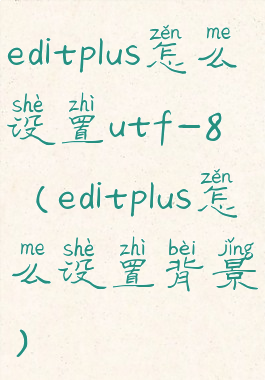 zěn me
editplus怎么
shè zhì
设置utf-8
zěn
(editplus怎
me shè zhì bèi jǐng
么设置背景
)